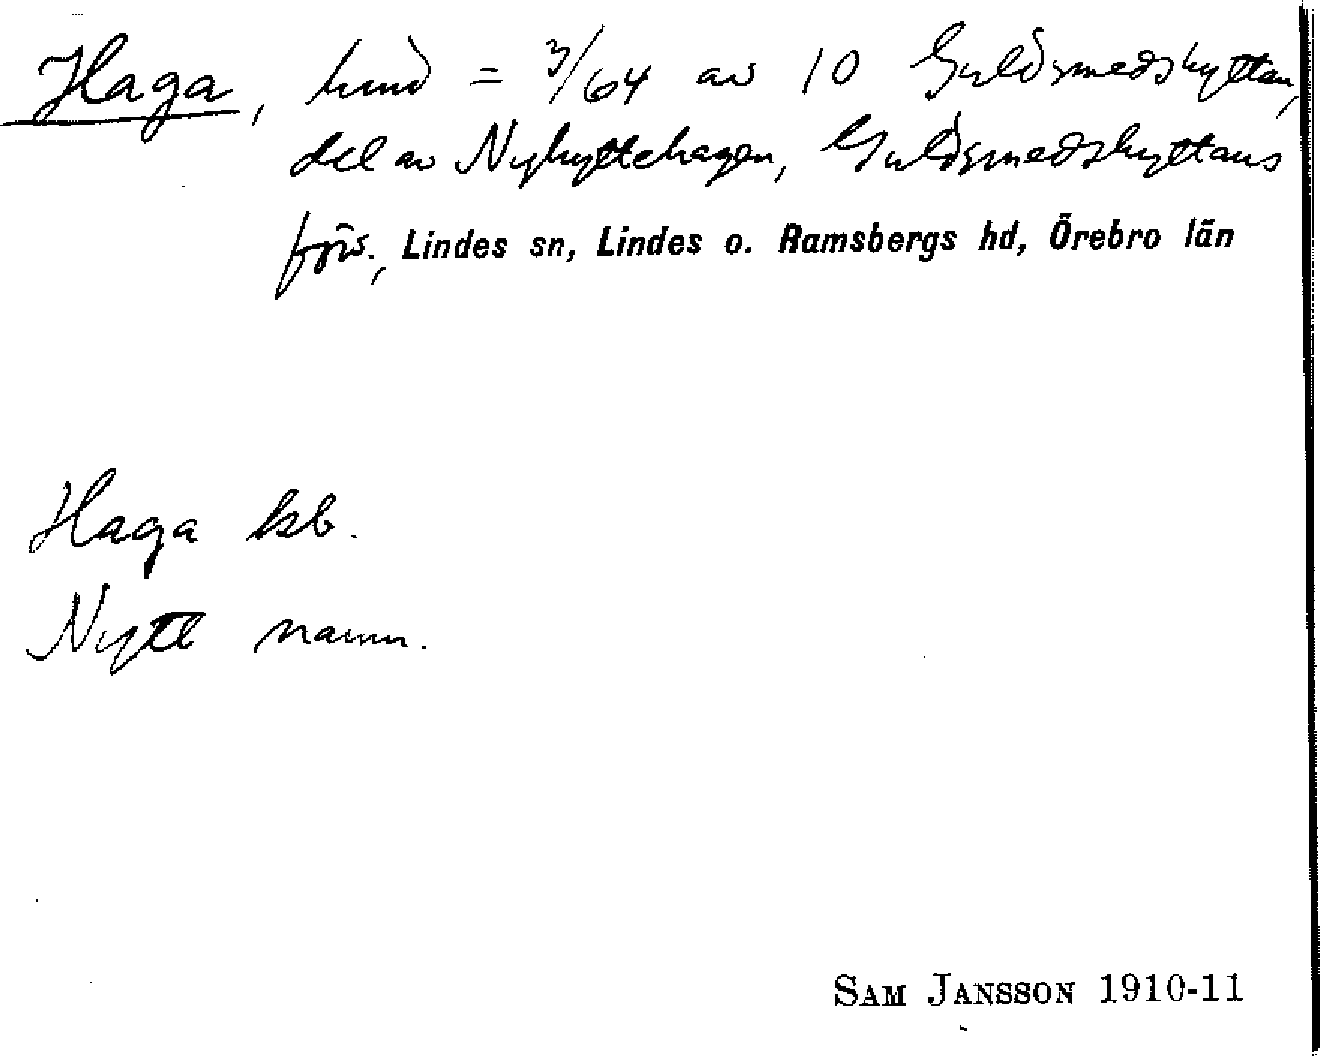 Haga, hmd = 3/64 av 10 Guldsmedshyttan,
del av Nyhyttehagen, Guldsmedshyttans
förs., Lindes sn, Lindes o. Ramsbergs hd, Örebro län
Haga kb.
Nytt namn.
SAM JANSSON 1910-11